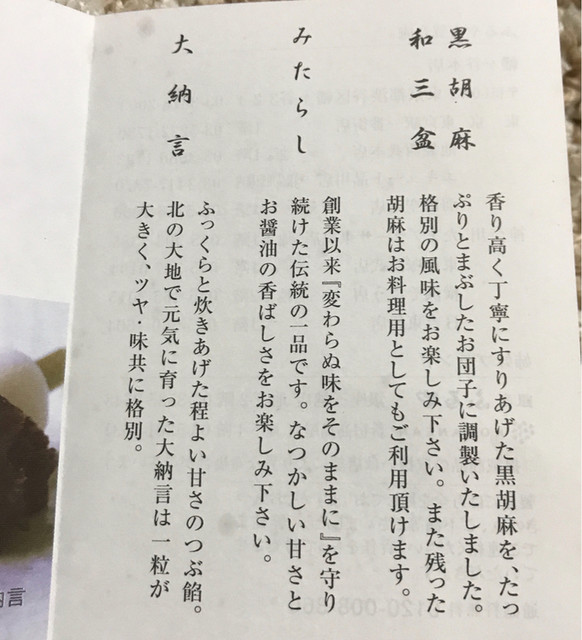 黒胡麻
和三盆
香り高く丁寧にすりあげた黒胡麻を、たっ
ぷりとまぶしたお団子に調製いたしました。
格別の風味をお楽しみ下さい。また残った
胡麻はお料理用としてもご利用頂けます。
みたらし
創業以来『変わらぬ味をそのままに』を守り
続けた伝統の一品です。なつかしい甘さと
お醤油の香ばしさをお楽しみ下さい。
大納言
ふっくらと炊きあげた程よい甘さのつぶ餡。
北の大地で元気に育った大納言は一粒が
大きくツヤ・味共に格別。
言